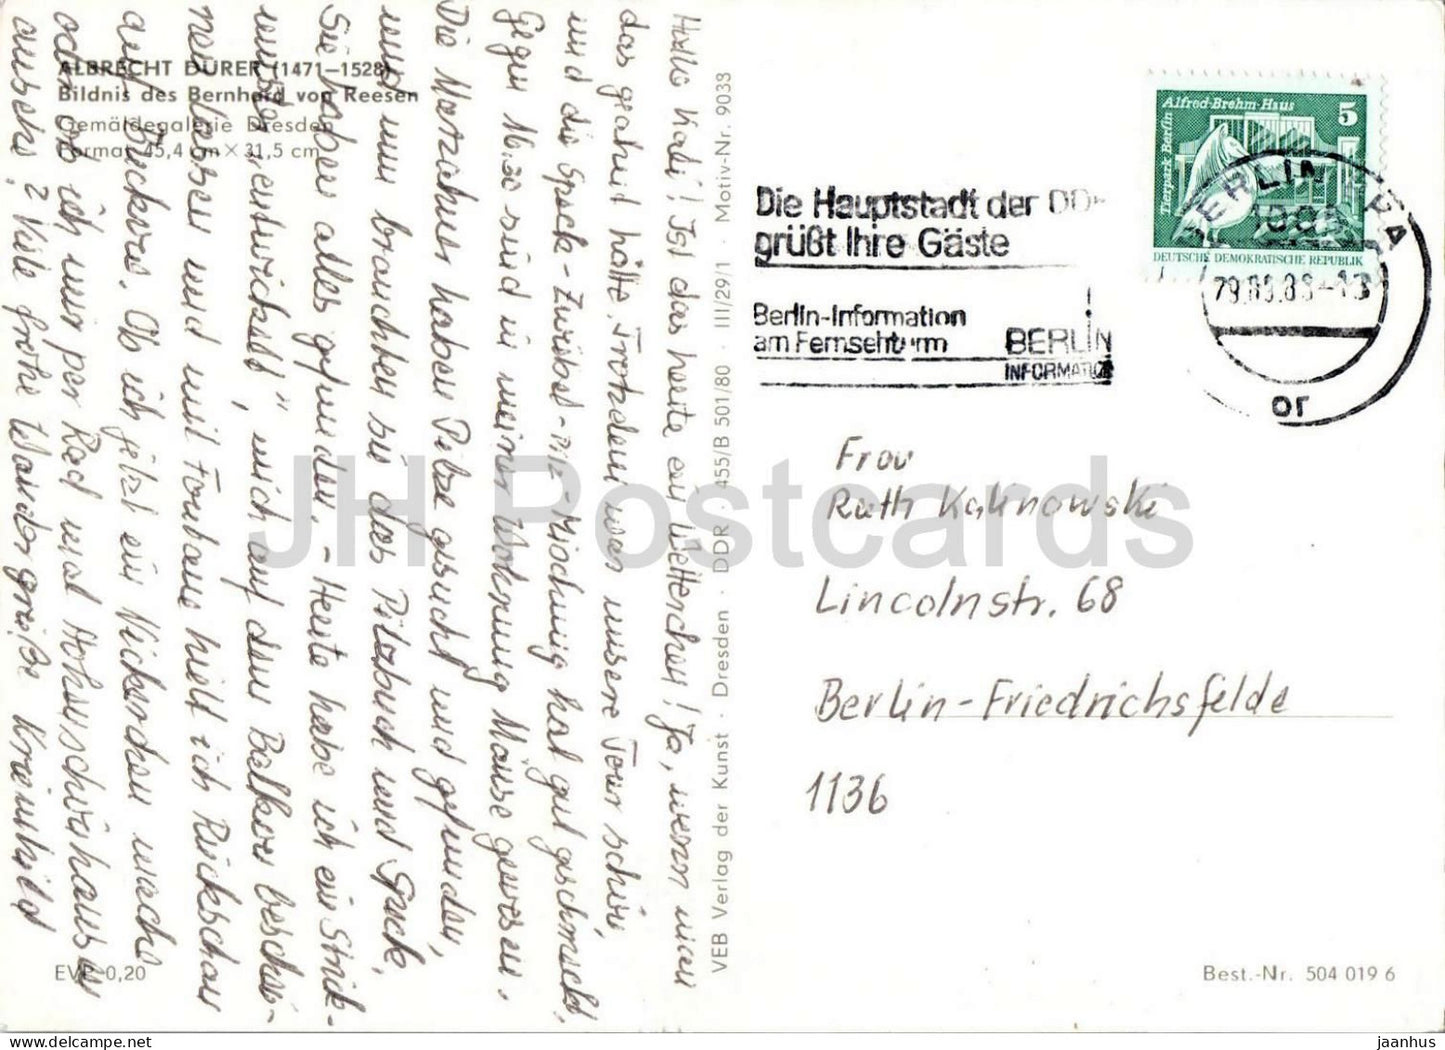 ALBRECHT DÜRER (1471–1528)
Bildnis des Bernhard von Reesen
Gemäldegalerie Dresden
Format 45,4 cm × 31,5 cm
Hallo Kati! Ist das heute ein Wetterchen! Ja, wenn man
das geahnt hätte. Trotzdem war unsere Tour schön
und die Speck-Zwiebel- -Mischung hat gut geschmeckt.
Gegen 16.30 sind in meiner Wohnung Mäuse gewesen.
Die Marzahner haben Pilze gesucht und gefunden,
und nun brauchten sie das Pilzbuch und Speck.
Sie haben alles gefunden. - Heute habe ich ein Strick-
"entwickelt", mich auf dem Balkon beschei-
nen lassen und mit Fontane hielt ich Rückschau
auf Buckow. Ob ich jetzt ein Nickerchen mache
oder ob ich mir per Rad mal Hohenschönhausen
ansehe? Viele frohe Wandergrüße Kramhild
EVP 0,20
VEB Verlag der Kunst · Dresden · DDR · 455/B 501/80 · III/29/1 · Motiv-Nr. 9033
Die Hauptstadt der DDR
grüßt Ihre Gäste
Berlin-Information
am Fernsehturm
BERLIN
INFORMATION
Alfred-Brehm-Haus
5
Tierpark Berlin
DEUTSCHE DEMOKRATISCHE REPUBLIK
BERLIN
or
Frau
Ruth Kalinowski
Lincolnstr. 68
Berlin-Friedrichsfelde
1136
Best.-Nr. 504 019 6
JH Postcards
https://www.hippostcard.com
jaanhus